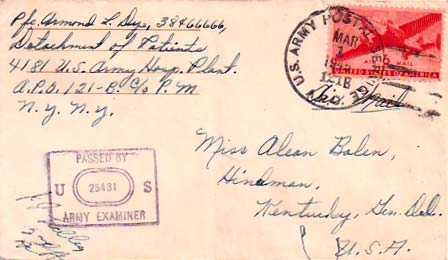 Pfc. Armond L. Dys, 38466666,
Detachment of Patients
4181 U.S. Army Hosp. Plant.
A.P.O. 121-B C/o P.M
N.Y. N.Y.
U.S. ARMY POSTAL SERVICE
MAR
1
121B
6
MAIL
UNITED STATES OF AMERICA
Air Mail
Miss Alean Bolen,
Hindman,
Kentucky, Gen. Del.
U.S.A.
PASSED BY
U 25431 S
ARMY EXAMINER